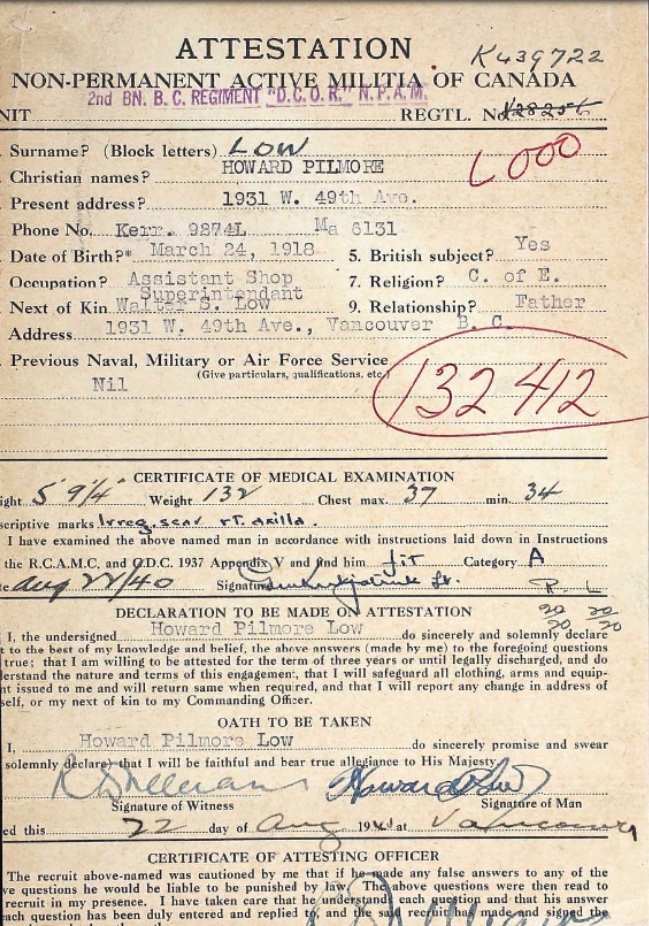 ATTESTATION
K439722
NON-PERMANENT ACTIVE MILITIA OF CANADA
2nd BN. B. C. REGIMENT "D.C.O.R." N.P.A.M.
NIT REGTL. No
Surname? (Block letters) LOW
Christian names? HOWARD PILMORE
Present address? 1931 W. 49th Ave.
Phone No. Kerr. 9874L Ma 6131
Date of Birth?* March 24, 1918 5. British subject? Yes
Occupation? Assistant Shop Superintendant 7. Religion? C. of E.
Next of Kin Walter S. Low 9. Relationship? Father
Address 1931 W. 49th Ave., Vancouver B. C.
Previous Naval, Military or Air Force Service
(Give particulars, qualifications, etc.)
Nil
132412
CERTIFICATE OF MEDICAL EXAMINATION
ight 5' 9 1/4" Weight 132 Chest max. 37 min. 34
scriptive marks Irreg. scar rt. axilla.
I have examined the above named man in accordance with instructions laid down in Instructions
the R.C.A.M.C. and C.D.C. 1937 Appendix V and find him fit Category A
te Aug 22/40 Signature
R. L
20/20 20/20
DECLARATION TO BE MADE ON ATTESTATION
I, the undersigned Howard Pilmore Low do sincerely and solemnly declare
t to the best of my knowledge and belief, the above answers (made by me) to the foregoing questions
true; that I am willing to be attested for the term of three years or until legally discharged, and do
lerstand the nature and terms of this engagement, that I will safeguard all clothing, arms and equip-
nt issued to me and will return same when required, and that I will report any change in address of
self, or my next of kin to my Commanding Officer.
OATH TO BE TAKEN
I, Howard Pilmore Low do sincerely promise and swear
solemnly declare) that I will be faithful and bear true allegiance to His Majesty
Howard P Low
Signature of Witness Signature of Man
ed this 22 day of Aug 194 at Vancouver
CERTIFICATE OF ATTESTING OFFICER
The recruit above-named was cautioned by me that if he made any false answers to any of the
ve questions he would be liable to be punished by law. The above questions were then read to
recruit in my presence. I have taken care that he understands each question and that his answer
each question has been duly entered and replied to, and the said recruit has made and signed the